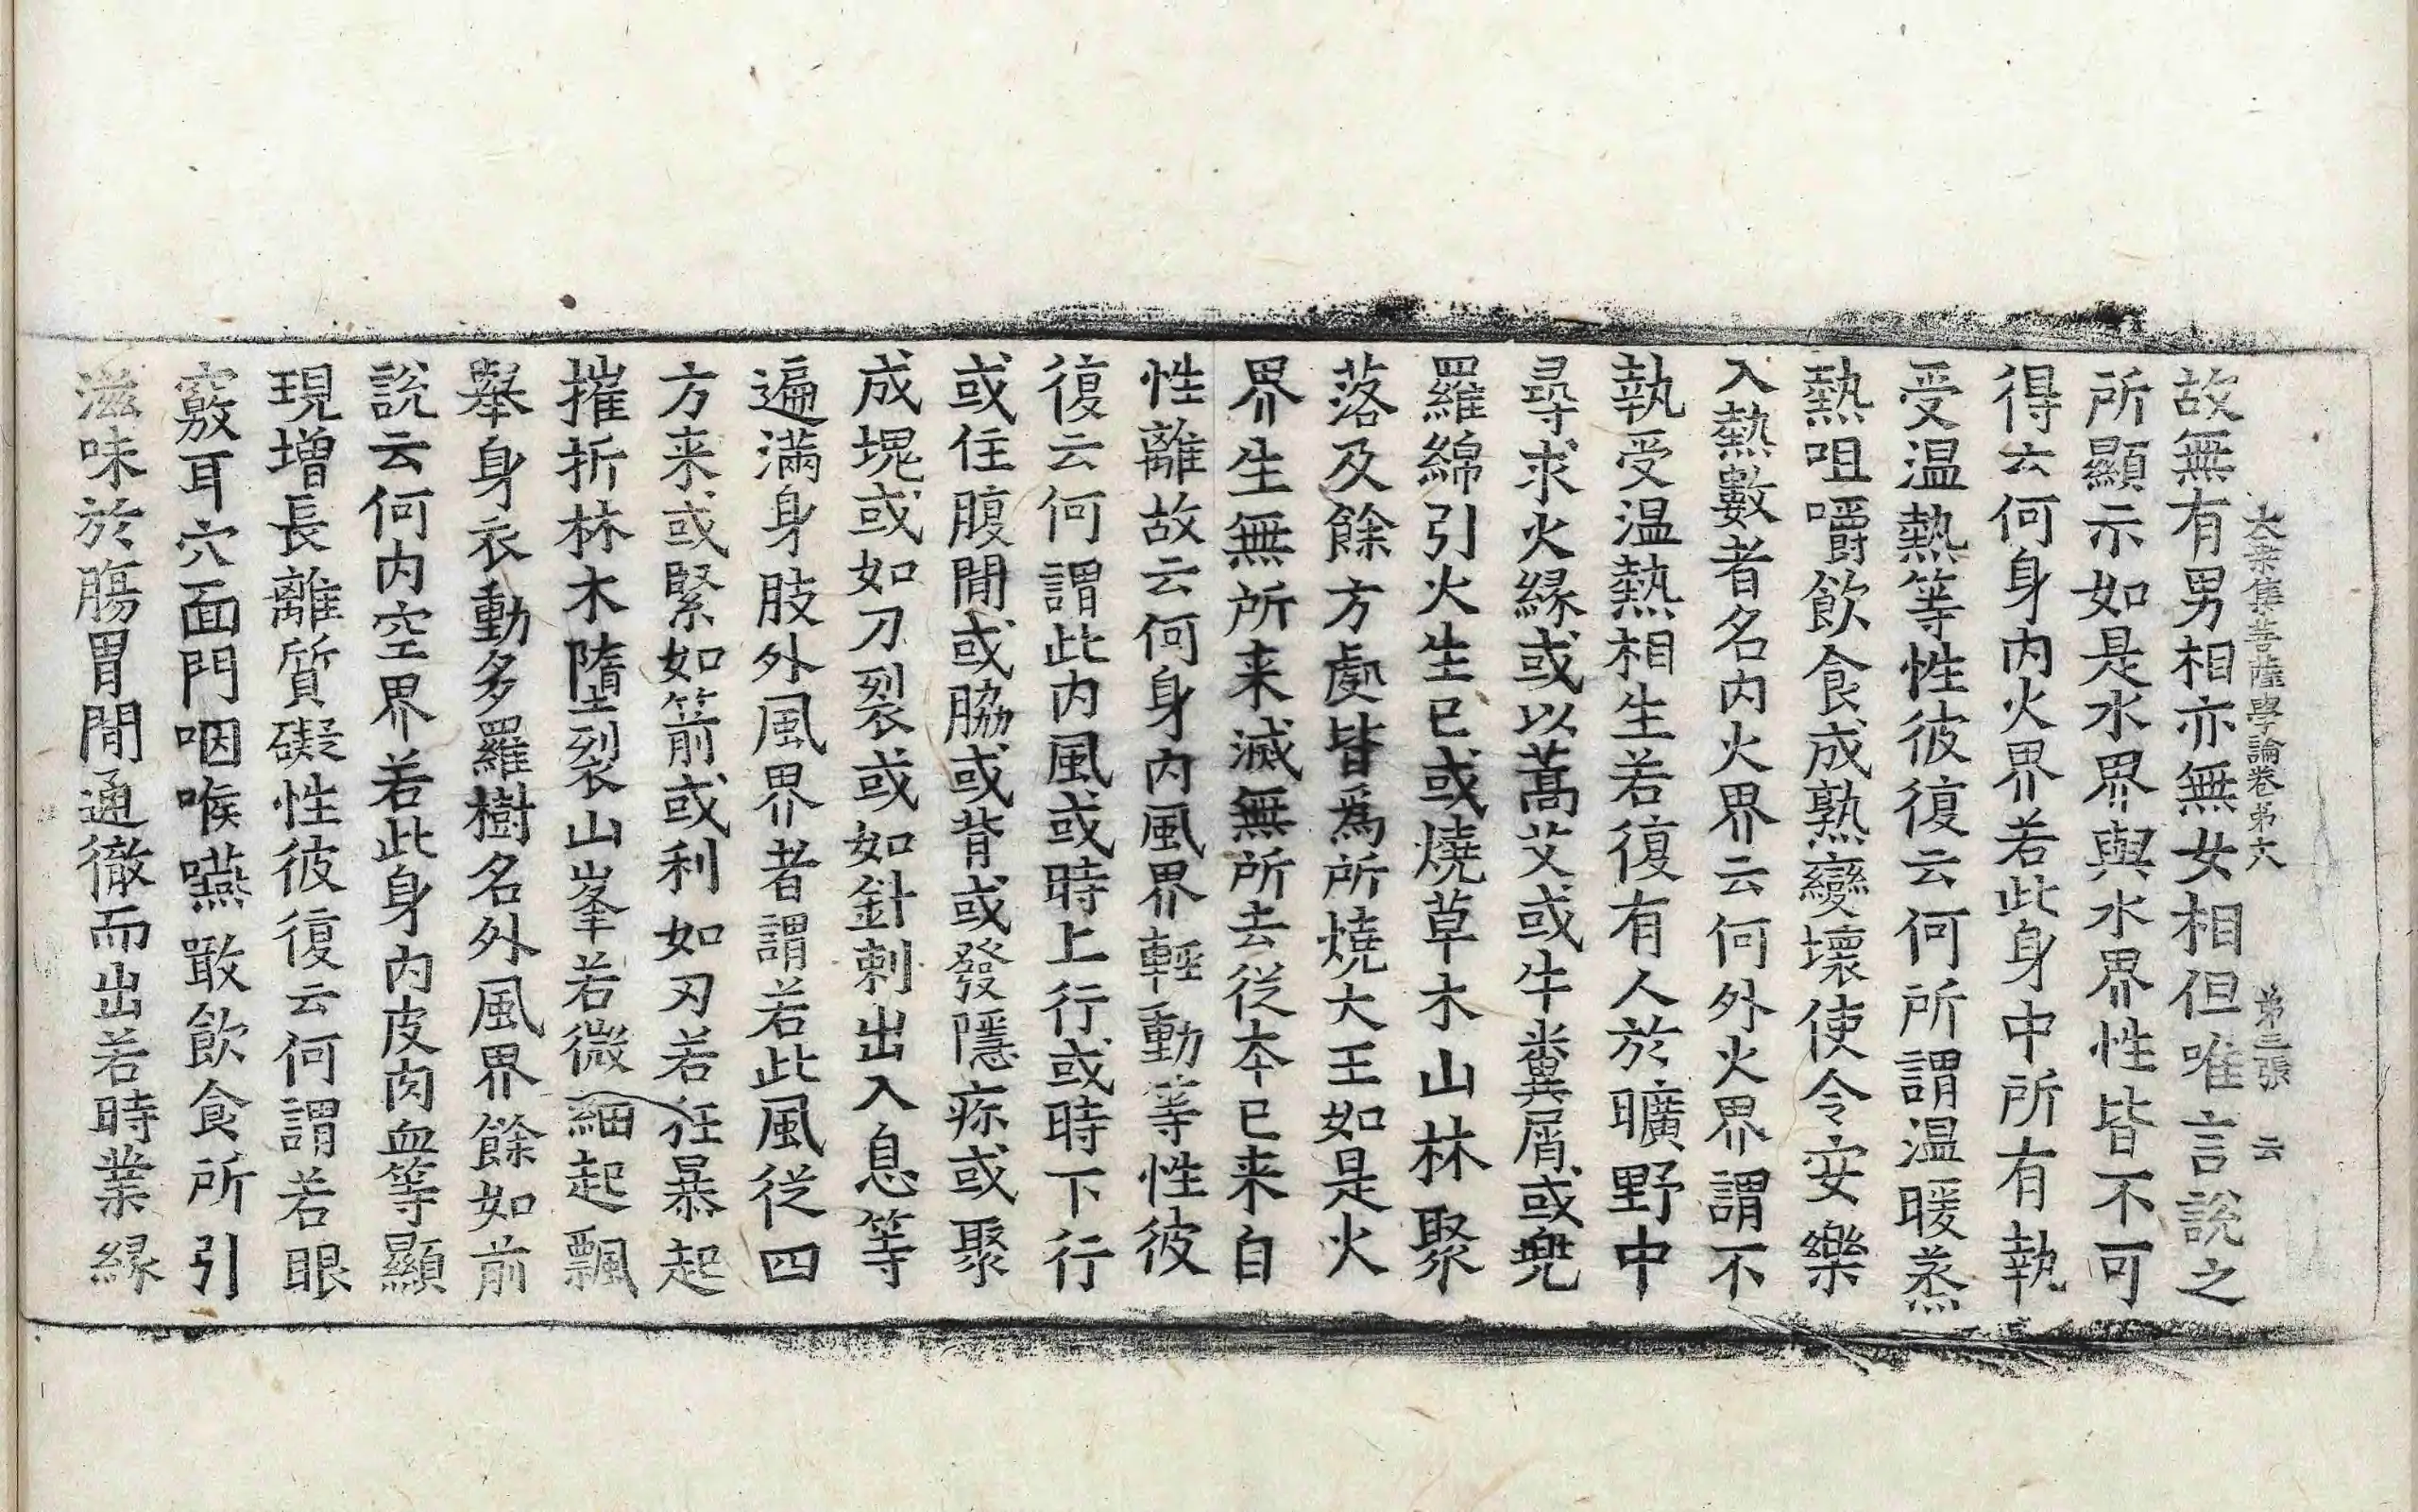 大乘集菩薩學論卷第六　第三張　云
故無有男相亦無女相但唯言說之
所顯示如是水界與水界性皆不可
得云何身内火界若此身中所有執
受温熱等性彼復云何所謂温暖蒸
熱咀嚼飲食成熟變壞使令安樂
入熱數者名内火界云何外火界謂不
執受温熱相生若復有人於曠野中
尋求火緣或以蒿艾或牛糞屑或兜
羅綿引火生已或燒草木山林聚
落及餘方處皆爲所燒大王如是火
界生無所来滅無所去從本已来自
性離故云何身内風界輕動等性彼
復云何謂此内風或時上行或時下行
或住腹間或脇或背或發隱疹或聚
成塊或如刀裂或如針刺出入息等
遍滿身肢外風界者謂若此風從四
方来或緊如箭或利如刃若狂暴起
摧折林木墮裂山峯若微細起飄
舉身衣動多羅樹名外風界餘如前
說云何内空界若此身内皮肉血等顯
現增長離質礙性彼復云何謂若眼
竅耳穴面門咽喉嚥噉飲食所引
滋味於膓胃間通徹而出若時業緣